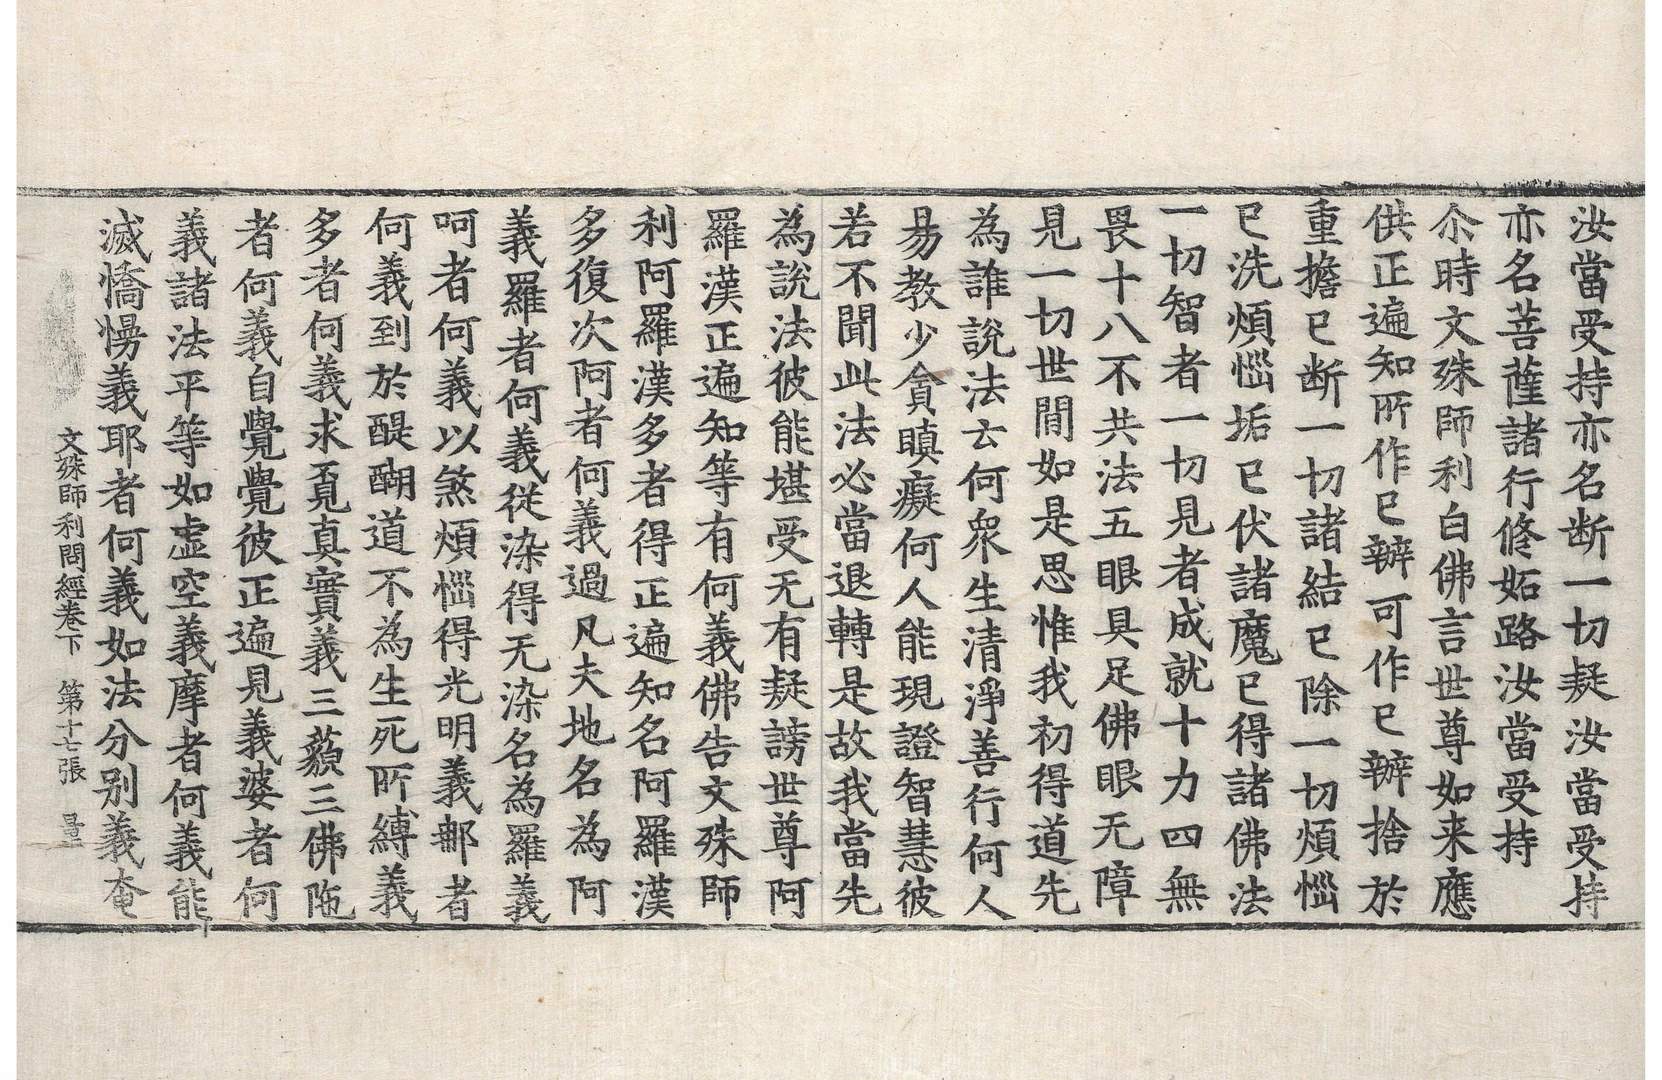 汝當受持亦名断一切疑汝當受持
亦名菩薩諸行修妬路汝當受持
尒時文殊師利白佛言世尊如来應
供正遍知所作已辦可作已辦捨於
重擔已断一切諸結已除一切煩惱
已洗煩惱垢已伏諸魔已得諸佛法
一切智者一切見者成就十力四無
畏十八不共法五眼具足佛眼无障
見一切世間如是思惟我初得道先
為誰說法云何衆生清淨善行何人
易教少貪瞋癡何人能現證智慧彼
若不聞此法必當退轉是故我當先
為說法彼能堪受无有疑謗世尊阿
羅漢正遍知等有何義佛告文殊師
利阿羅漢多者得正遍知名阿羅漢
多復次阿者何義過凡夫地名為阿
義羅者何義從染得无染名為羅義
呵者何義以煞煩惱得光明義郍者
何義到於醍醐道不為生死所縛義
多者何義求覔真實義三藐三佛陁
者何義自覺覺彼正遍見義婆者何
義諸法平等如虛空義摩者何義能
滅憍慢義耶者何義如法分别義奄
文殊師利問經卷下 第十七張 量